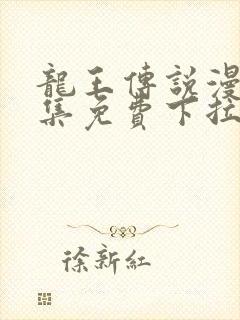 龍王傳說漫
集免費下拉
徐新紅